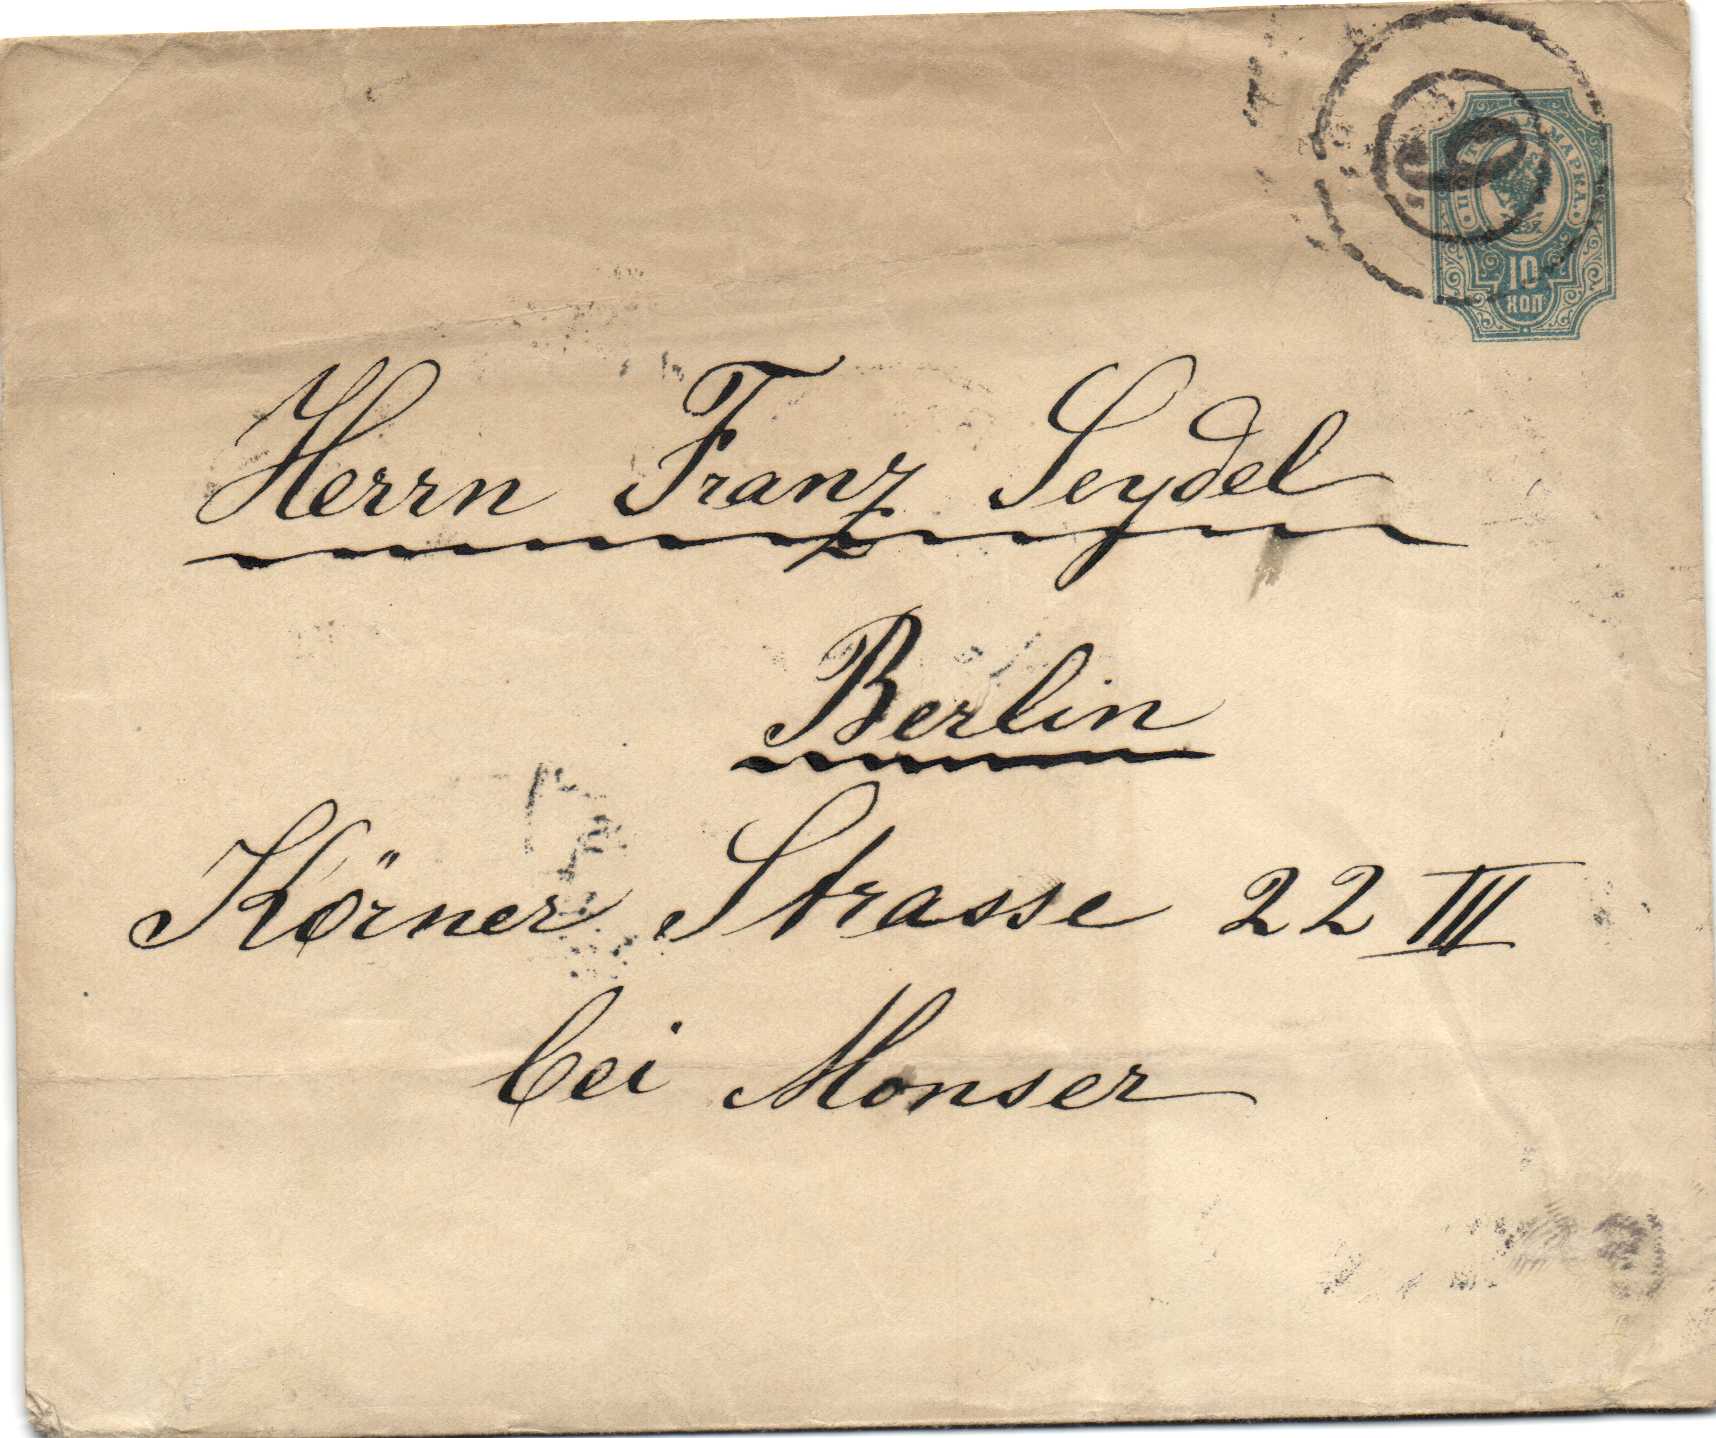 ПОЧТОВАЯ МАРКА
10
КОП
Herrn Franz Seydel
Berlin
Körner Strasse 22 III
bei Monser